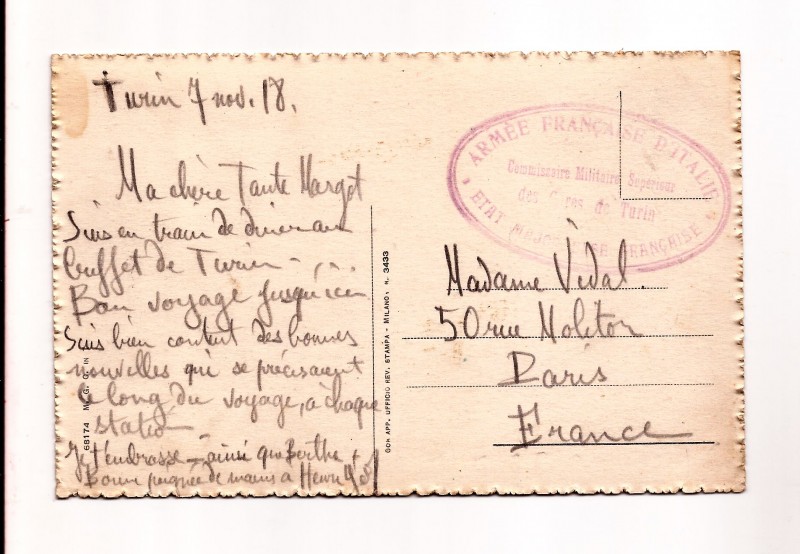 Turin 7 nov. 18.
Ma chère Tante Margot
Suis en train de diner au
buffet de Turin -
Bon voyage jusqu'ici
Suis bien content des bonnes
nouvelles qui se précisaient
le long du voyage, à chaque
station
Je t'embrasse - ainsi que Berthe +
Bonne poignée de mains à Henri
ARMÉE FRANÇAISE D'ITALIE
Commissaire Militaire Supérieur
des Gares de Turin
ETAT MAJOR FRANÇAISE
Madame Vidal.
50 rue Molitor
Paris
France
GON APP. UFFICIO REV. STAMPA - MILANO: N. 3433
68174